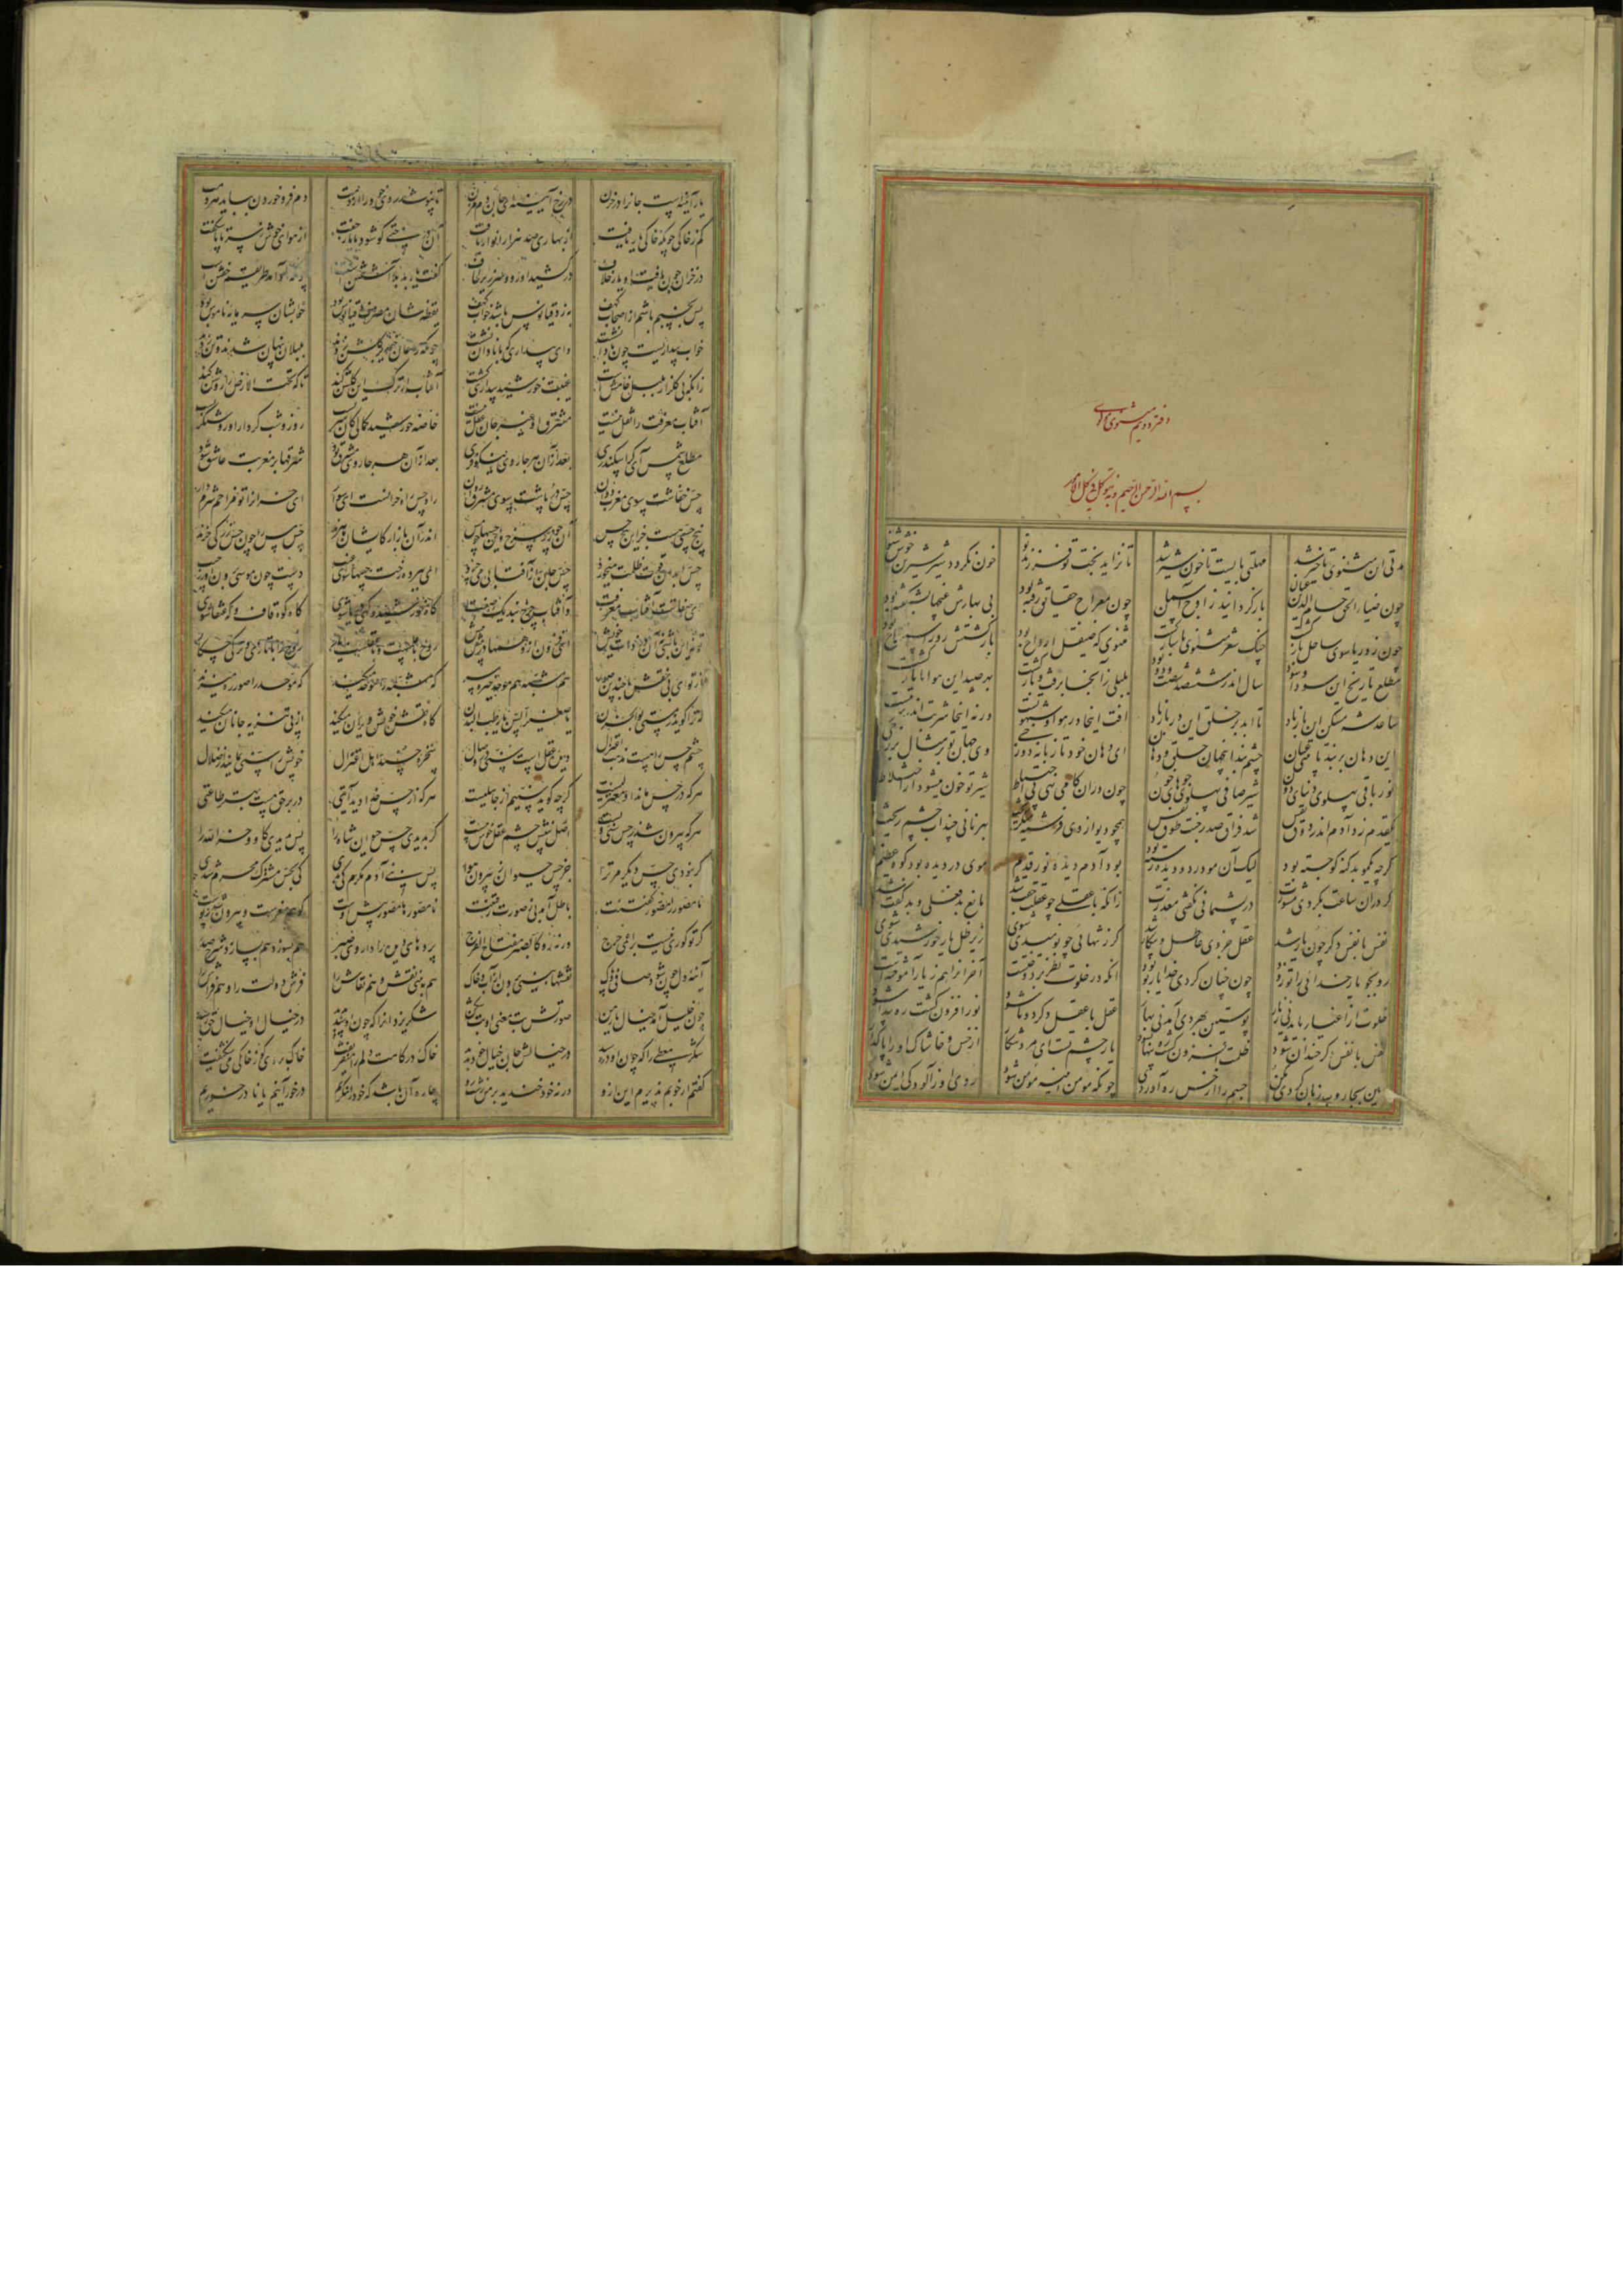 دفتر دویم مثنوی مولوی
بسم الله الرحمن الرحیم و به نتوکل فی کل الامور
مدتی ان مثنوی تاخیر شد مهلتی بایست تا خون شیر شد تا نزاید بخت تو فرزند نو خون نکردد شیر شیرین خوش شنو
چون ضیاء الحق حسام الدین عنان بازکردانید ز اوج آسمان چون بمعراج حقایق رفته بود بی بهارش غنچها نشکفته بود
چون ز دریا سوی ساحل بازکشت چنک شعر مثنوی با ساز کشت مثنوی که صیقل ارواح بود بازکشتش روز استفتاح بود
مطلع تاریخ این سودا و سود سال اندر ششصد و شصت و دو بود بلبلی زآنجا برفت و بازکشت بهر صید این موانا بازکشت
ساعد شه مسکن این باز باد تا ابد بر خلق این در باز باد افت اینجا در هوا و شهوتست ورنه اینجا شربت اندر شربتست
این دهان بربند تا بینی عیان چشم بند انجهان حلق و دهان ای دهان خود تا زبانه دوزخی وی جهان تو بر مثال برزخی
نور باقی پهلوی دنیای دون شیر صافی پهلوی جوهای خون چون دران کامی نهی بی احتیاط شیر تو خون میشود از اختلاط
یکقدم زد آدم اندر ذوق نفس شد فراق صدر جنت طوق نفس همچو دیو از وی فرشته میکریخت بهر نانی چند آب چشم ریخت
کرچه یکمو بد کنه کو جسته بود لیک آن مو در دو دیده رسته بود بود آدم دیدهٔ نور قدیم موی در دیده بود کوه عظیم
کر دران ساعت بکردی مشورت در پشیمانی نکفتی معذرت زانکه با عقلی چو عقلی جفت شد مانع بدفعلی و بدکفت شد
نفس با نفس دکر چون یار شد عقل جزوی عاطل و بیکار شد کر ز تنهائی چو نومیدی شوی زیر ظل یار خورشیدی شوی
رو بجو یار خدائی را تو زود چون چنان کردی خدا یار تو بود انکه در خلوت نظر بردوختست آخر انرا هم ز یار آموختست
خلوت از اغیار باید نی ز یار پوستین بهر دی آمد نی بهار عقل با عقل دکر دوتا شود نور افزون کشت و ره پیدا شود
نفس با نفس دکر خندان شود ظلمت افزون کشت ره پنهان شود یار چشم تست ای مرد شکار از خس و خاشاک او را پاک دار
هین بجاروب زبان کردی مکن جسم را از خس ره آوردی مکن چونکه مومن آینه مومن شود روی او ز آلودکی ایمن شود
یار آینه است جانرا در حزن در رخ آیینه ای جان دم مزن تا نپوشد روی خود را در دمت دم فرو خوردن بباید هر دمت
کم ز خاکی چونکه خاکی یار یافت از بهاری صد هزار انوار یافت آن درختی کو شود با یار جفت از هوای خوش ز سر تا پا شکفت
در خزان چون یافت او یار خلاف درکشید او رو و سر زیر لحاف کفت یار بد بلا آشفتن است چونکه او آمد طریقم خفتن است
پس بخسپم باشم از اصحاب کهف به ز دقیانوس باشد خواب کهف یقظه شان مصروف دقیانوس بود خوابشان سرمایه ناموس بود
خواب بیداریست چون با دانشست وای بیداری که با نادان نشست چونکه زاغان خیمه بر کلشن زدند بلبلان پنهان شدند و تن زدند
زانکه بی کلزار بلبل خامشست غیبت خورشید بیداری کشست آفتابا ترک این کلشن کنی تا که تحت الارض را روشن کنی
آفتاب معرفت را نقل نیست مشرق او غیر جان و عقل نیست خاصه خورشید کمالی کان سریست روز و شب کردار او روشنکریست
مطلع شمس آی کر اسکندری بعد ازآن هرجا روی نیکوفری بعد ازآن هرجا روی مشرق شود شرقها بر مغربت عاشق شود
حس خفاشت سوی مغرب دوان حس درپاشت سوی مشرق روان راه حس راه خرانست ای سوار ای خرانرا تو مزاحم شرم دار
پنج حسی هست جز این پنج حس آن چو زر سرخ و این حسها چو مس اندر آن بازار کایشان ماهرند حس مس را چون حس زر کی خرند
حس ابدان قوت ظلمت میخورد حس جان از آفتابی می چرد ای ببرده رخت حسها سوی غیب دست چون موسی برون آور ز جیب
ای صفاتت آفتاب معرفت و آفتاب چرخ بند یک صفت کاه خورشید و کهی دریا شوی کاه کوه قاف و که عنقا شوی
تو نه این باشی نه آن در ذات خویش ای فزون از وهمها وز بیش بیش روح با علمست و با عقلست یار روح را با تازی و ترکی چه کار
از تو ای بی نقش با چندین صور هم مشبه هم موحد خیره سر که مشبه را موحد میکند که موحد را صور ره میزند
که ترا کوید ز مستی بوالحسن یا صغیر السن یا رطب البدن کاه نقش خویش ویران میکند از پی تنزیه جانان میکند
چشم حس را هست مذهب اعتزال دیده عقل است سنی در وصال سخره حسند اهل اعتزال خویش را سنی نمایند از ضلال
هرکه در حس ماند او معتزلیست کرچه کوید سنیم از جاهلیست هرکه از حس خدا دید آیتی در بر حق هست بهتر طاعتی
هرکه بیرون شد ز حس سنی ویست اهل بینش چشم عقل خوش پیست کر بدیدی حس حیوان شاه را پس بدیدی کاو و خر الله را
کر نبودی حس دیکر مر ترا جز حس حیوان ز بیرون هوا پس بنی آدم مکرم کی بدی کی بحس مشترک محرم شدی
نامصور یا مصور کفتنت باطل آمد بی ز صورت رفتنت نامصور یا مصور پیش اوست کو همه مغزست و بیرون شد ز پوست
کر تو کوری نیست بر اعمی حرج ورنه رو کالصبر مفتاح الفرج پرده های دیده را داروی صبر هم بسوزد هم بسازد شرح صدر
آینه دل چون شود صافی و پاک نقشها بینی برون از آب و خاک هم ببینی نقش و هم نقاش را فرش دولت را و هم فراش را
چون خلیل آمد خیال یار من صورتش بت معنی او بت شکن شکر یزدانرا که چون او شد پدید در خیالش جان خیال خود بدید
خاک درکاهت دلم را میفریفت خاک بر وی کو ز خاکت میشکیفت
کفتم ار خوبم پذیرم این ازو ورنه خود خندید بر من زشت رو چاره آن باشد که خود را بنکرم درخور آنم یا نا درخورم